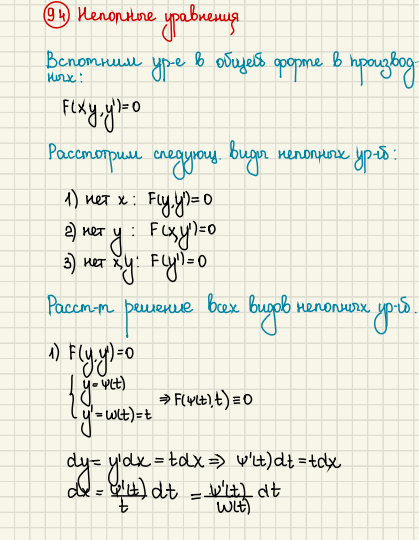 94 Неполные уравнения
Вспомним ур-е в общей форме в производ-
ных:
F(x,y,y')=0
Рассмотрим следующ. виды неполных ур-й:
1) нет x : F(y,y')=0
2) нет y : F(x,y')=0
3) нет x,y: F(y')=0
Рассм-м решение всех видов неполных ур-й.
1) F(y,y')=0
{ y=φ(t)
y'=ω(t)=t ⇒ F(φ(t),t)≡0
dy= y'dx = tdx ⇒ φ'(t)dt=tdx
dx = φ'(t)/t dt = φ'(t)/ω(t) dt